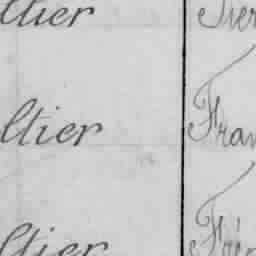 ltier Pier
ltier Fran
ltier